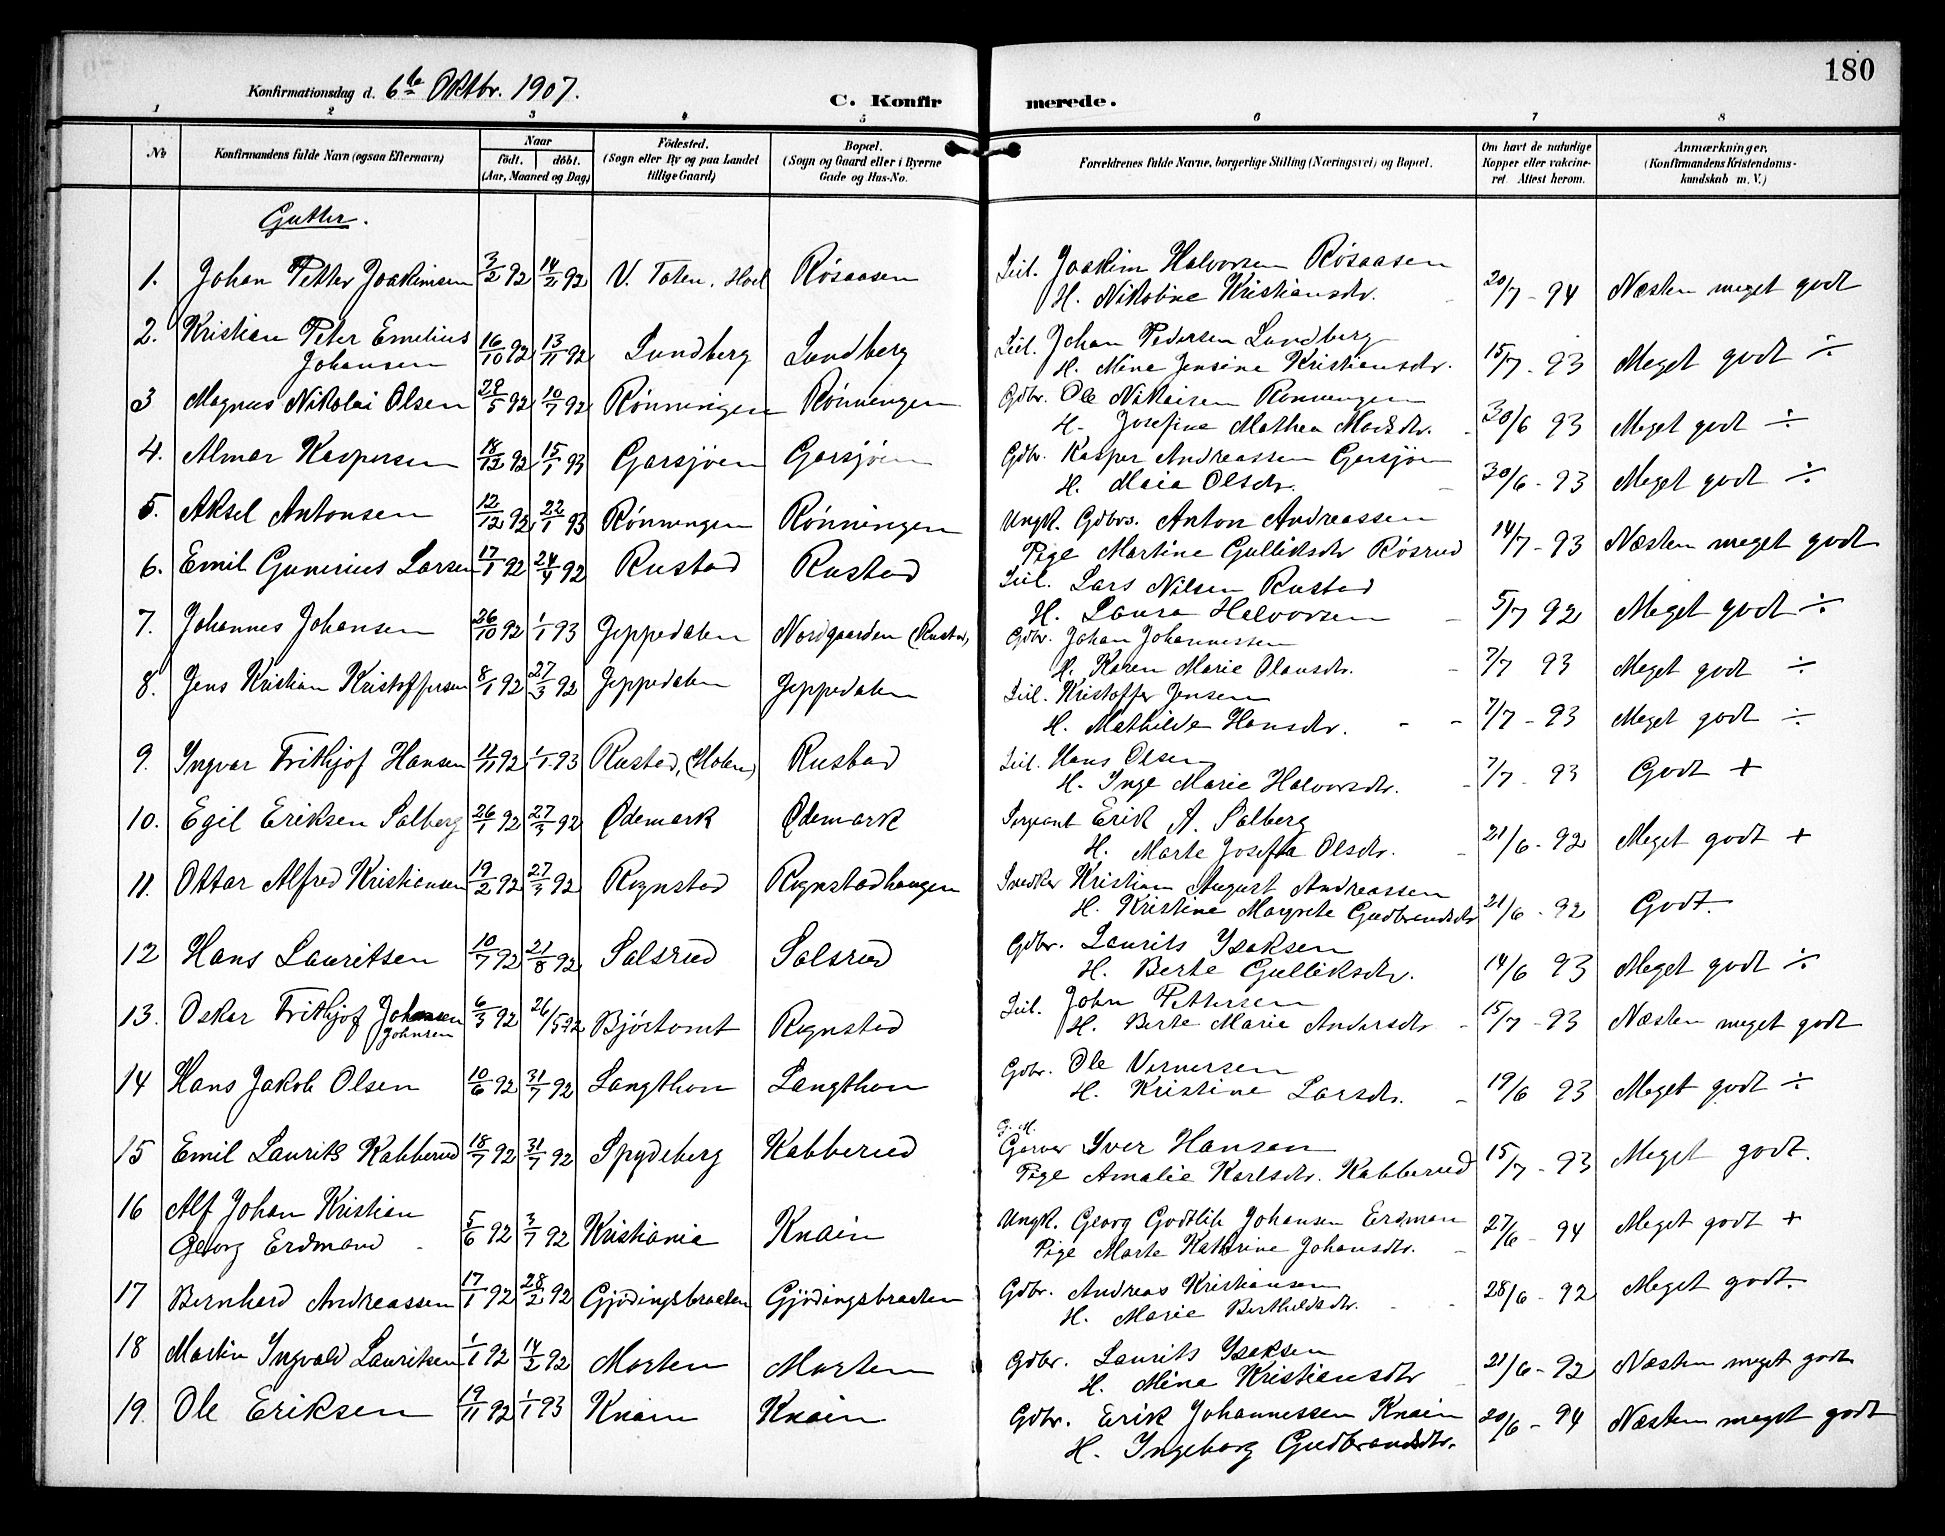 180
Konfirmationsdag d. 6te Oktbr. 1907.
C. Konfirmerede.
1 2 3 4 5 6 7 8
No
Konfirmandens fulde Navn (ogsaa Efternavn)
Naar
födt. döbt.
(Aar, Maaned og Dag)
Födested.
(Sogn eller By og paa Landet
tillige Gaard)
Bopæl.
(Sogn og Gaard eller i Byerne
Gade og Hus-No.
Forældrenes fulde Navne, borgerlige Stilling (Næringsvei) og Bopæl.
Om havt de naturlige
Kopper eller vakcine-
ret. Attest herom.
Anmærkninger.
(Konfirmandens Kristendoms-
kundskab m. V.)
Gutter.
1. Johan Petter Joakimsen 3/2 92 14/2 92 V. Toten, Hoel Rósaasen Joakim Halvorsen Rósaasen
H. Nikoline Kristiansdr. 20/7 - 94 Næsten meget godt
2. Kristian Peter Emelius
Johansen 16/10 92 13/11 92 Lundberg Lundberg Johan Pedersen Lundberg
H. Mina Jensine Kristiansdr. 15/7 - 93 Meget godt ÷
3 Magnus Nikolai Olsen 29/5 92 10/7 92 Rónningen Rónningen Gdbr. Ole Nikaisen Rónningen
H. Josefine Mathea Madsdr. 30/6 93 Meget godt ÷
4. Almar Kaspersen 18/12 92 15/1 93 Garsjøen Garsjøen Gdbr. Kasper Andreassen Garsjøen
H. Maia Olsdr. 30/6 - 93 Meget godt ÷
5. Aksel Antonsen 12/12 92 22/1 93 Rónningen Rónningen Ungk. Gdbrs. Anton Andreassen
Pige Martine Gulliksdr Rósrud 14/7 - 93 Næsten meget godt
6. Emil Gunerius Larsen 17/1 92 24/4 92 Rustad Rustad Lars Nilsen Rustad
H. Laura Halvorsen 5/7 92 Meget godt ÷
7. Johannes Johansen 26/10 92 1/1 93 Jeppedalen Nordgaarden (Rustad) Gdbr. Johan Johannessen
H. Karen Marie Olausdr. 7/7 93 Meget godt ÷
8. Jens Kristian Kristoffersen 8/1 92 27/3 92 Jeppedalen Jeppedalen Kristoffer Jensen
H. Mathilde Hansdr. 7/7 - 93 Meget godt ÷
9. Ingvar Frithjof Hansen 11/11 92 1/1 93 Rustad, (Holen) Rustad Hans Olsen
H. Inge Marie Halvorsdr. 7/7 - 93 Godt +
10. Egil Eriksen Salberg 26/1 92 27/3 92 Ødemark Ødemark Sergeant Erik A. Salberg
H. Marte Josefa Olsdr. 21/6 - 92 Meget godt +
11. Ottar Alfred Kristiansen 19/2 92 27/3 92 Rognstad Rognstadhaugen Snedker Kristian August Andreassen
H. Kristine Margrete Gudbrandsdr 21/6 - 92 Godt.
12 Hans Lauritsen 10/7 92 21/8 92 Salsrud Salsrud Gdbr. Laurits Ysaksen
H. Berte Gulliksdr. 14/6 93 Meget godt ÷
13. Oskar Frithjof Johansen
Johnsen 6/3 92 26/5 92 Bjórtomt Rognstad John Pettersen
H. Berte Marie Andersdr 15/7 - 93 Næsten meget godt
14 Hans Jakob Olsen 10/6 92 31/7 92 Langthon Langthon Gdbr. Ole Vernersen
H. Kristine Larsdr. 19/6 93 Meget godt ÷
15 Emil Laurits Kabberud 18/7 92 31/7 92 Spydeberg Kabberud G. M.
Garver Iver Hansen
Pige Amalie Karlsdr. Kabberud 15/7 - 93 Meget godt.
16 Alf Johan Kristian
Georg Erdmand 5/6 92 3/7 92 Kristiania Knain Ungk. Georg Godtlib Johansen Erdman
Pige Marte Kathrine Johansdr. 27/6 - 94 Meget godt +
17 Bernhard Andreassen 17/1 92 28/2 92 Gjódingsbraaten Gjódingsbraaten Gdbr. Andreas Kristiansen
H. Marie Bertheldsdr. 28/6 - 92 Meget godt.
18 Martin Ingvald Lauritsen 1/1 92 14/2 92 Morten Morten Gdbr. Laurits Ysaksen
H. Mina Kristiansdr 21/6 - 92 Næsten meget godt
19. Ole Eriksen 19/11 92 1/1 93 Knain Knain Gdbr. Erik Johannessen Knain
H. Ingeborg Gudbrandsdr. 20/6 - 94 Næsten meget godt